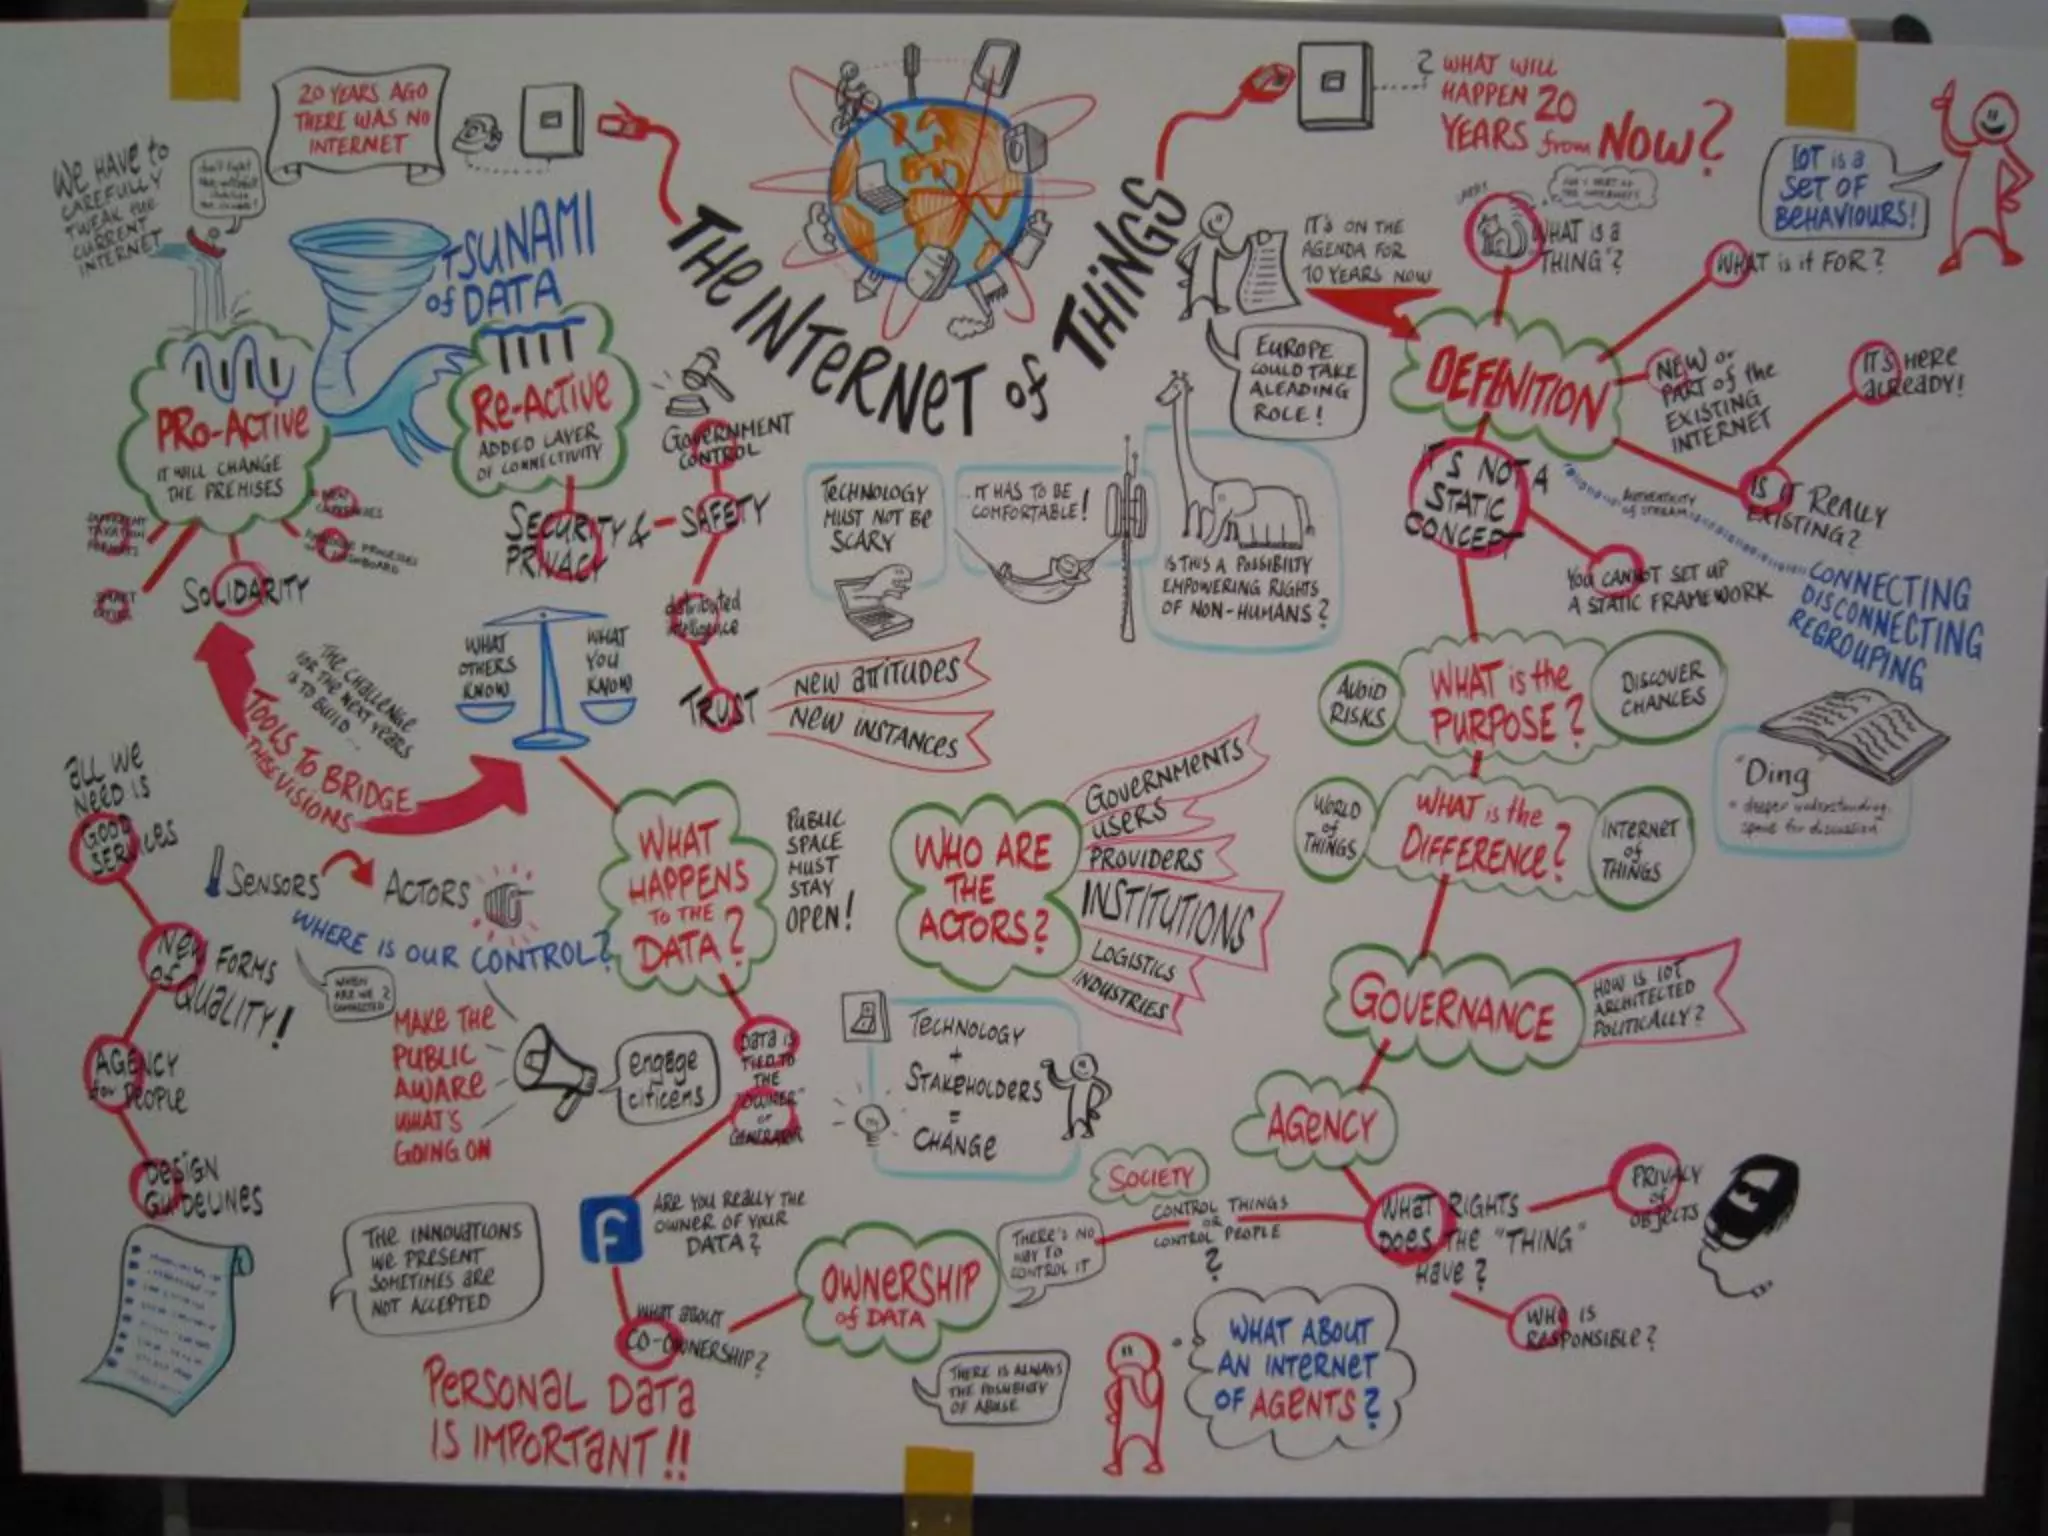 20 YEARS AGO
THERE WAS NO
INTERNET
WE HAVE to
CAREFULLY
TWEAK THE
CURRENT
INTERNET
TSUNAMI
of DATA
PRO-ACTIVE
IT WILL CHANGE
THE PREMISES
RE-ACTIVE
ADDED LAYER
OF CONNECTIVITY
SOLIDARITY
SECURITY &
PRIVACY
GOVERNMENT
CONTROL
SAFETY
distributed
intelligence
TRUST
NEW ATTITUDES
NEW INSTANCES
THE INTERNET of THINGS
? WHAT WILL
HAPPEN 20
YEARS from NOW?
IOT is a
SET OF
BEHAVIOURS!
IT'S ON THE
AGENDA FOR
10 YEARS NOW
EUROPE
COULD TAKE
A LEADING
ROLE!
DEFINITION
WHAT IS a
"THING"?
WHAT is it FOR?
NEW or
PART of the
EXISTING
INTERNET
IT'S HERE
alREADY!
IS IT REALLY
EXISTING?
IT'S NOT A
STATIC
CONCEPT
YOU CANNOT SET UP
A STATIC FRAMEWORK
AUTHENTICITY
of STREAM
CONNECTING
DISCONNECTING
REGROUPING
TECHNOLOGY
MUST NOT BE
SCARY
IT HAS TO BE
COMFORTABLE!
IS THIS A POSSIBILTY
EMPOWERING RIGHTS
OF NON-HUMANS?
WHAT
OTHERS
KNOW
WHAT
YOU
KNOW
THE CHALLENGE
FOR THE NEXT YEARS
IS TO BUILD...
TOOLS TO BRIDGE
THESE VISIONS
AVOID
RISKS
WHAT is the
PURPOSE?
DISCOVER
CHANCES
WORLD
of
THINGS
WHAT is the
DIFFERENCE?
INTERNET
of
THINGS
"Ding
= deeper understanding,
space for discussion
all WE
NEED IS
GOOD
SERVICES
NEW FORMS
of QUALITY!
AGENCY
for PEOPLE
DESIGN
GUIDELINES
SENSORS
ACTORS
WHERE IS OUR CONTROL?
WHEN
ARE WE
CONNECTED
?
WHAT
HAPPENS
TO THE
DATA?
PUBLIC
SPACE
MUST
STAY
OPEN!
WHO ARE
THE
ACTORS?
GOVERNMENTS
USERS
PROVIDERS
INSTITUTIONS
LOGISTICS
INDUSTRIES
MAKE THE
PUBLIC
AWARE
WHAT'S
GOING ON
engage
citicens
DATA IS
TIED TO
THE
"OWNER"
or
GENERATOR
TECHNOLOGY
+
STAKEHOLDERS
=
CHANGE
GOVERNANCE
HOW IS IOT
ARCHITECTED
POLITICALLY?
AGENCY
SOCIETY
CONTROL THINGS
OR
CONTROL PEOPLE
?
WHAT RIGHTS
DOES THE "THING"
HAVE?
PRIVACY
of
OBJECTS
WHO IS
RESPONSIBLE?
THE INNOVATIONS
WE PRESENT
SOMETIMES ARE
NOT ACCEPTED
f
ARE YOU REALLY THE
OWNER OF YOUR
DATA?
WHAT ABOUT
CO-OWNERSHIP?
OWNERSHIP
of DATA
THERE'S NO
WAY TO
CONTROL IT
THERE IS ALWAYS
THE POSIBILITY
OF ABUSE
PERSONAL DATA
IS IMPORTANT!!
WHAT ABOUT
AN INTERNET
OF AGENTS?